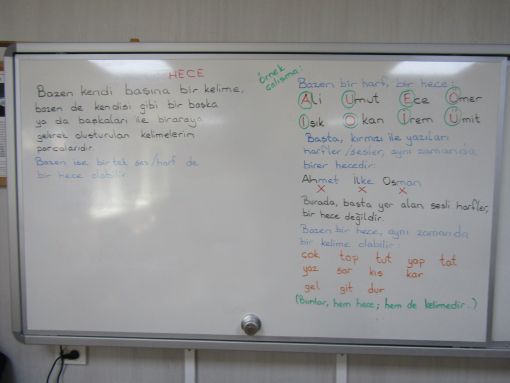 HECE
Bazen kendi başına bir kelime,
bazen de kendisi gibi bir başka
ya da başkaları ile biraraya
gelerek oluşturulan kelimelerin
parçalarıdır.
Bazen ise bir tek ses/harf de
bir hece olabilir.
örnek
çalışma:
Bazen bir harf, bir hece:
Ali Umut Ece Ömer
Işık Okan İrem Ümit
Başta, kırmızı ile yazılan
harfler/sesler, aynı zamanda,
birer hecedir.
Ahmet İlke Osman
x x x
Burada, başta yer alan sesli harfler,
bir hece değildir.
Bazen bir hece, aynı zamanda
bir kelime olabilir:
çok top tut yap tat
yaz sar kış kar
gel git dur
(Bunlar, hem hece; hem de kelimedir..)